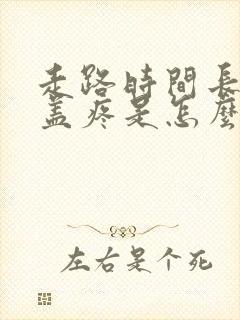 走路時間長
蓋疼是怎麼
左右是个死